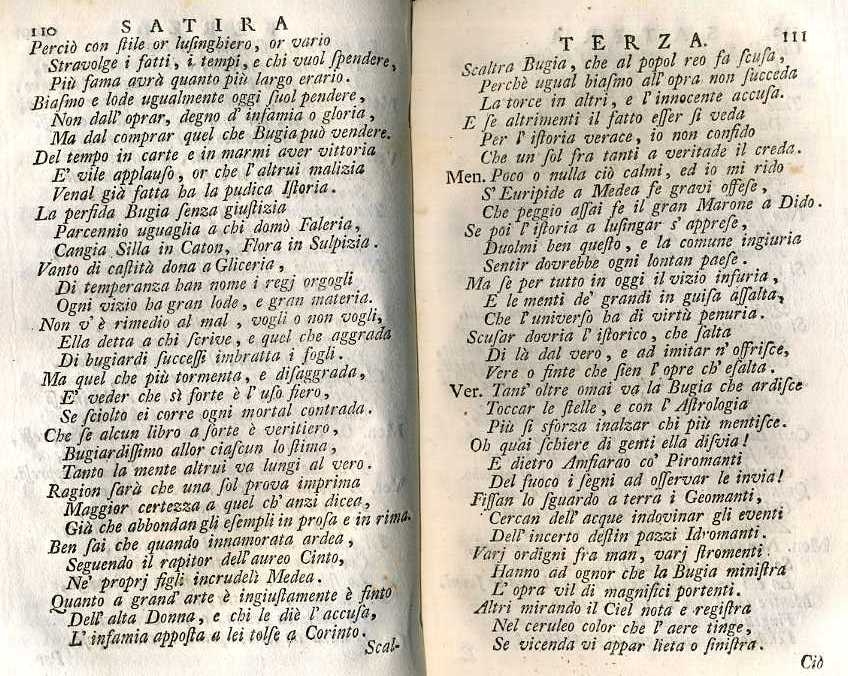 110 SATIRA
Perciò con ſtile or luſinghiero, or vario
Stravolge i fatti, i tempi, e chi vuol ſpendere,
Più fama avrà quanto più largo erario.
Biaſmo e lode ugualmente oggi ſuol pendere,
Non dall' oprar, degno d' infamia o gloria,
Ma dal comprar quel che Bugia può vendere.
Del tempo in carte e in marmi aver vittoria
E' vile applauſo, or che l' altrui malizia
Venal già fatta ha la pudica Iſtoria.
La perfida Bugia ſenza giuſtizia
Parcennio uguaglia a chi domò Faleria,
Cangia Silla in Caton, Flora in Sulpizia.
Vanto di caſtità dona a Gliceria,
Di temperanza han nome i regj orgogli
Ogni vizio ha gran lode, e gran materia.
Non v' è rimedio al mal, vogli o non vogli,
Ella detta a chi ſcrive, e quel che aggrada
Di bugiardi ſucceſſi imbratta i fogli.
Ma quel che più tormenta, e diſaggrada,
E' veder che sì forte è l' uſo fiero,
Se ſciolto ei corre ogni mortal contrada.
Che ſe alcun libro a ſorte è veritiero,
Bugiardiſſimo allor ciaſcun lo ſtima,
Tanto la mente altrui va lungi al vero.
Ragion ſarà che una ſol prova imprima
Maggior certezza a quel ch' anzi dicea,
Già che abbondan gli eſempli in proſa e in rima.
Ben ſai che quando innamorata ardea,
Seguendo il rapitor dell' aureo Cinto,
Ne' proprj figli incrudelì Medea.
Quanto a grand' arte è ingiuſtamente è finto
Dell' alta Donna, e chi le diè l' accuſa,
L' infamia appoſta a lei tolſe a Corinto.
Scal-
TERZA. 111
Scaltra Bugia, che al popol reo fa ſcuſa,
Perchè ugual biaſmo all' opra non ſucceda
La torce in altri, e l' innocente accuſa.
E ſe altrimenti il fatto eſſer ſi veda
Per l' iſtoria verace, io non confido
Che un ſol fra tanti a veritade il creda.
Men. Poco o nulla ciò calmi, ed io mi rido
S' Euripide a Medea fe gravi offeſe,
Che peggio aſſai fe il gran Marone a Dido.
Se poi l' iſtoria a luſingar s' appreſe,
Duolmi ben queſto, e la comune ingiuria
Sentir dovrebbe ogni lontan paeſe.
Ma ſe per tutto in oggi il vizio infuria,
E le menti de' grandi in guiſa aſſalta,
Che l' univerſo ha di virtù penuria.
Scuſar dovria l' iſtorico, che ſalta
Di là dal vero, e ad imitar n' offriſce,
Vere o finte che ſien l' opre ch' eſalta.
Ver. Tant' oltre omai va la Bugia che ardiſce
Toccar le ſtelle, e con l' Aſtrologia
Più ſi sforza inalzar chi più mentiſce.
Oh quai ſchiere di genti ella diſvia!
E dietro Amfiarao co' Piromanti
Del fuoco i ſegni ad oſſervar le invia!
Fiſſan lo ſguardo a terra i Geomanti,
Cercan dell' acque indovinar gli eventi
Dell' incerto deſtin pazzi Idromanti.
Varj ordigni fra man, varj ſtromenti
Hanno ad ognor che la Bugia miniſtra
L' opra vil di magnifici portenti.
Altri mirando il Ciel nota e regiſtra
Nel ceruleo color che l' aere tinge,
Se vicenda vi appar lieta o ſiniſtra.
Ciò